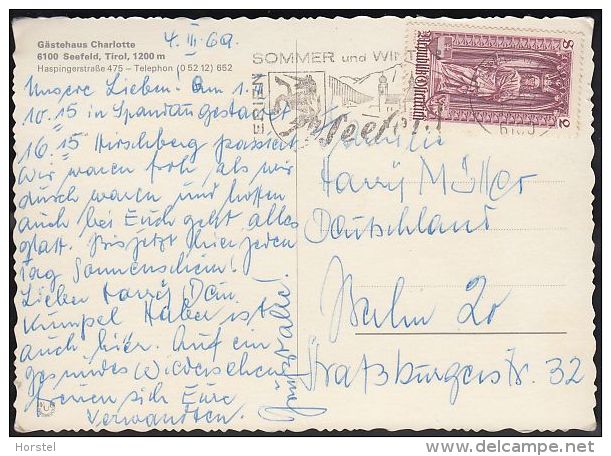 Gästehaus Charlotte
6100 Seefeld, Tirol, 1200 m
Haspingerstraße 475 – Telephon (0 52 12) 652
4. III. 69.
Unsere Lieben. Am 1.
10.15 in Spandau gestartet
16.15 Hirschberg passiert
Wir waren froh als wir
durch waren und hoffen
auch bei Euch geht alles
glatt. Bis jetzt hier jeden
Tag Sonnenschein!
Lieber Harry Dein
Kumpel Haber ist
auch hier. Auf ein
gesundes (w)iedersehen
freuen sich Eure
Verwandten.
FERIEN
SOMMER und WINTER
Seefeld
Republik Österreich
S 2
Familie
Harry Müller
Deutschland
Berlin 20
Straßburgerstr. 32
Horstel
www.delcampe.net